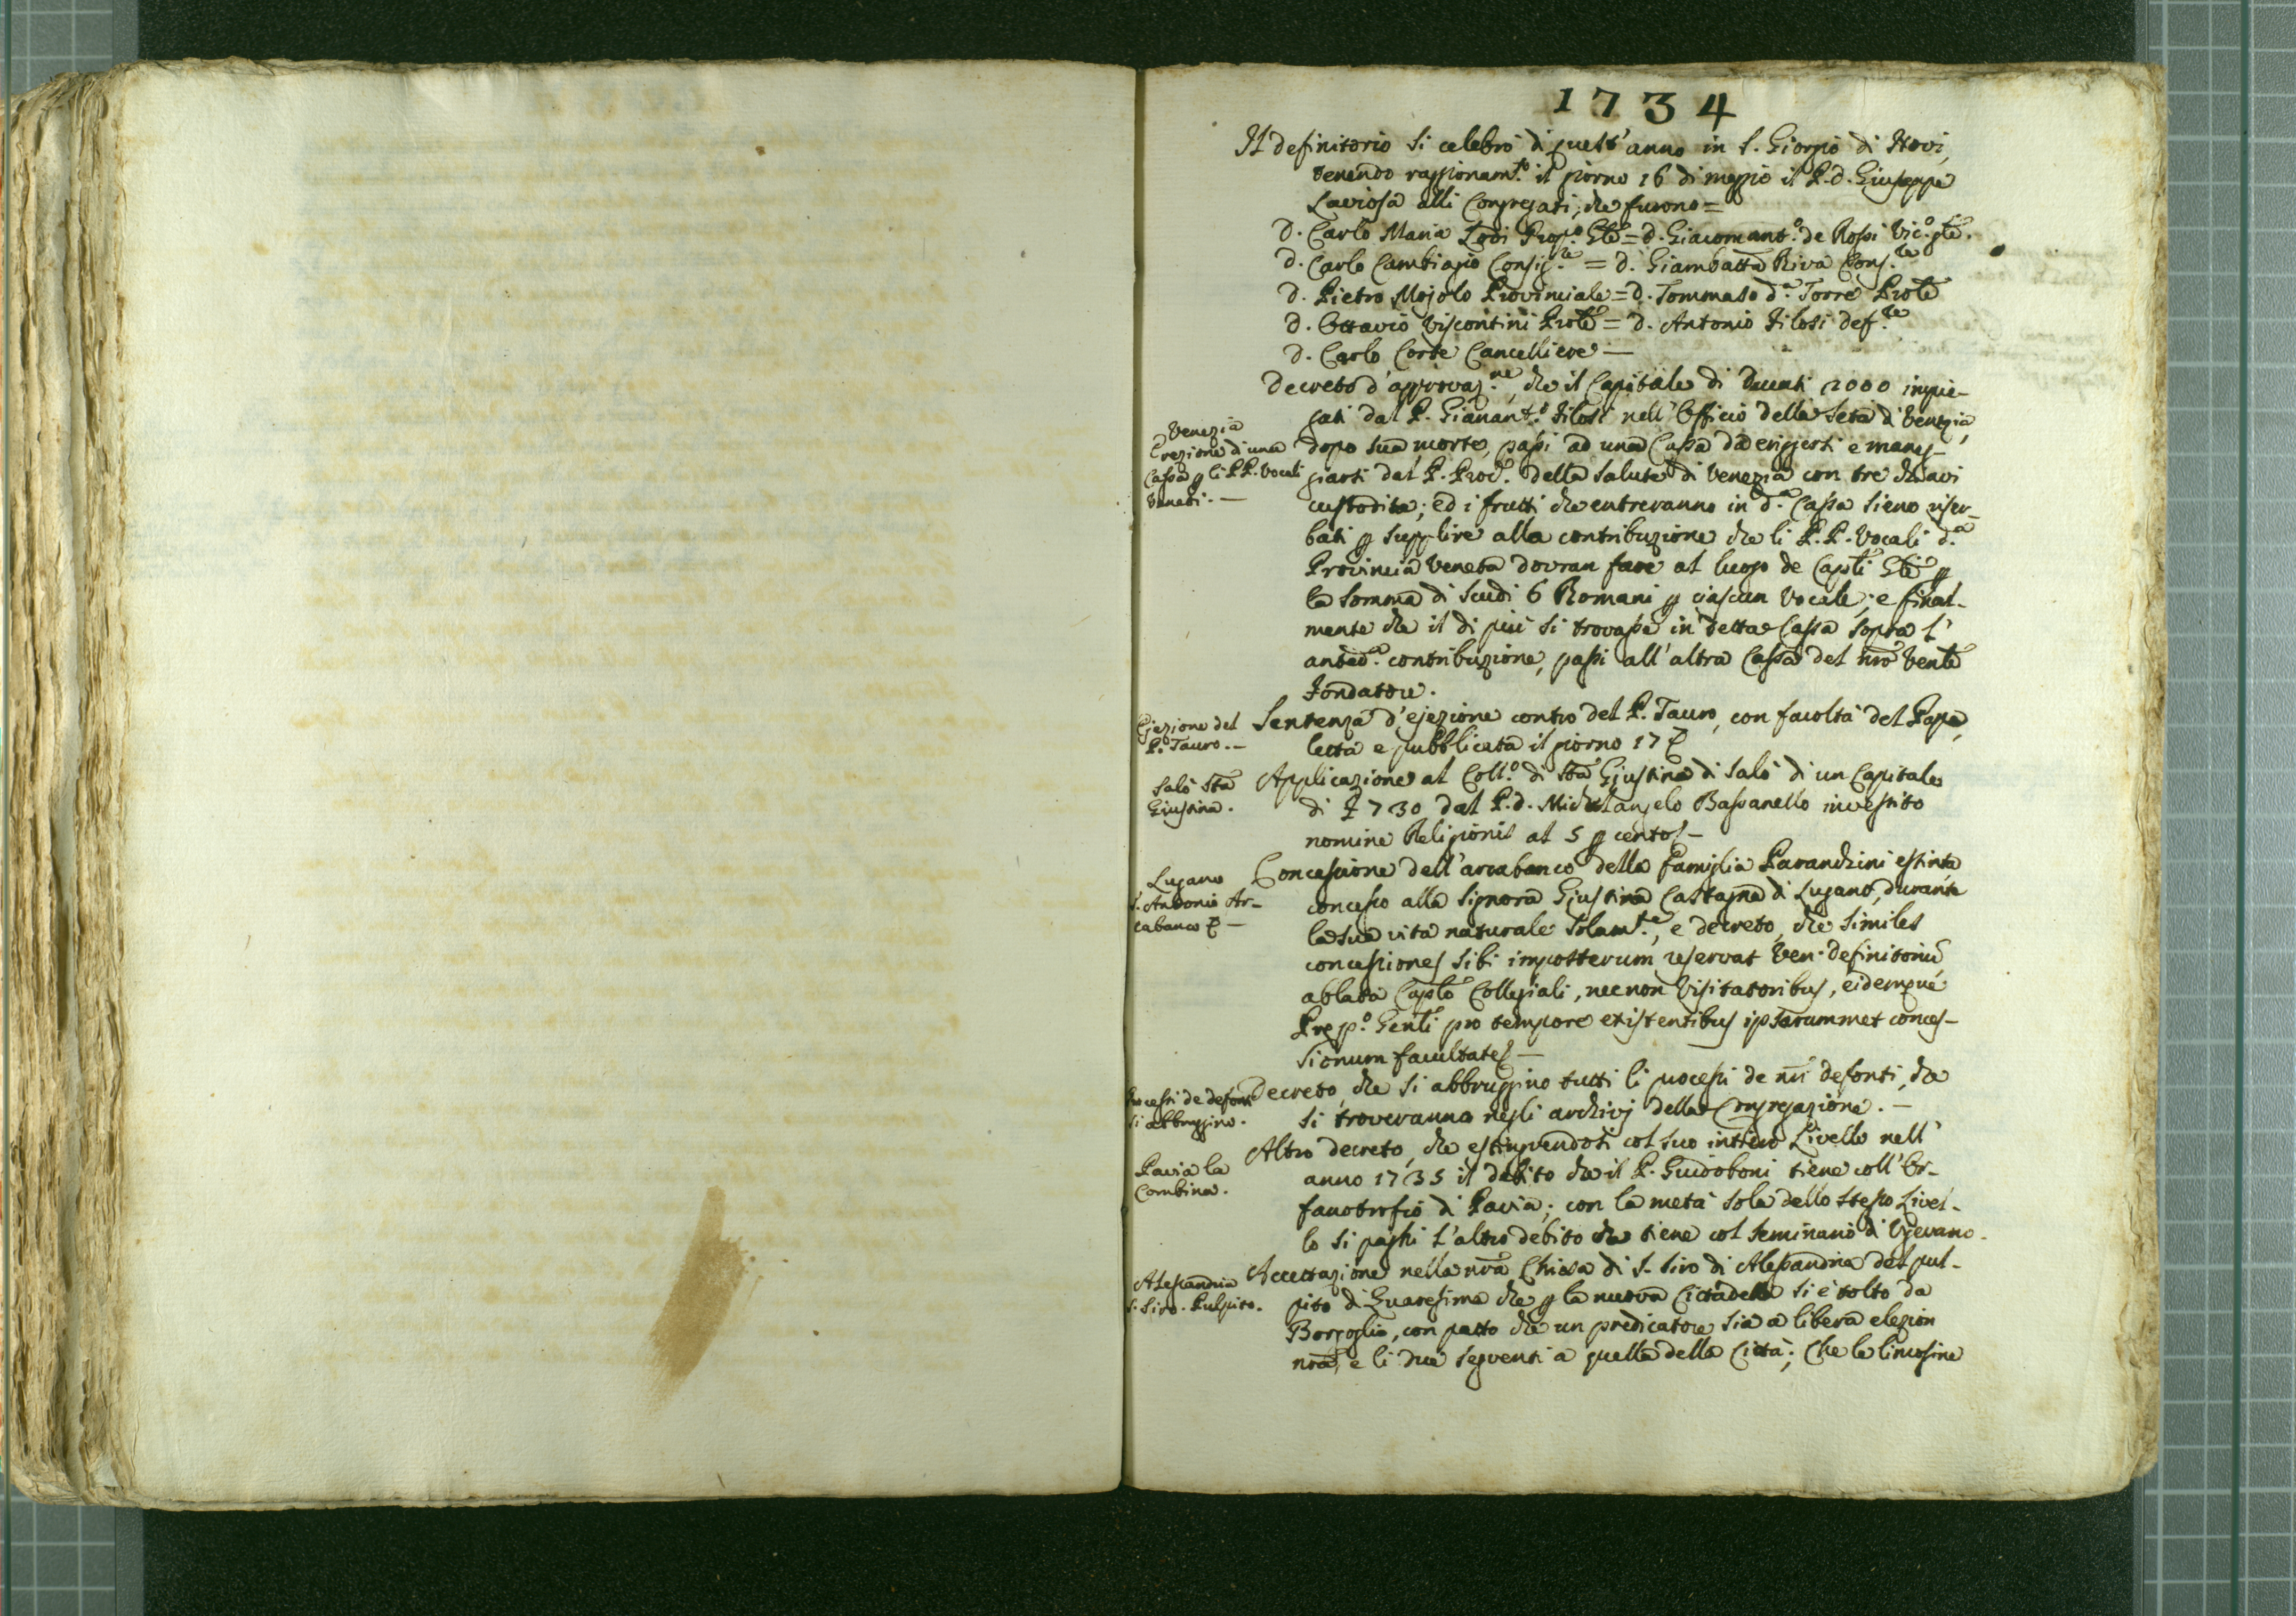 1734
Il definitorio si celebrò di quest'anno in S. Giorgio di Novi,
tenendo raggionam.to il giorno 16 di maggio il P. d. Giuseppe
Laviosa alli Congregati, che furono =
D. Carlo Maria Lodi Prep.o Gñle = d. Giacomant.o de Rossi Vic.o gñle.
d. Carlo Cambiagio Consig.re = d. Giambatta Riva Cons.re
D. Pietro Mojolo Provinciale = d. Tommaso d.a Torre Prôle
d. Ottavio Viscontini Prôle = d. Antonio Filosi def.re
D. Carlo Corte Cancelliere —
Decreto d'approvaz.ne, che il Capitale di Ducati 2000 impie-
gati dal P. Gianant.o Filosi nell'Officio della Seta di Venezia,
dopo sua morte, passi ad una Cassa da eriggersi e maneg-
giarsi dal P. Prov. della Salute di Venezia con tre chiavi
custodita; ed i frutti che entreranno in d.a Cassa sieno riser-
bati p supplire alla contribuzione che li P.P. Vocali d.a
Provincia Veneta dovran fare al luogo de Capli Gñli p
la somma di scudi 6 Romani p ciascun Vocale; e final-
mente che il di più si trovasse in detta Cassa sopra l'
anted.a contribuzione, passi all'altra Cassa del nro Venle
Fondatore.
Venezia
Erezione di una
Cassa p li PP. Vocali
Veneti. —
Sentenza d'ejezione contro del P. Tauro, con facoltà del Papa,
letta e pubblicata il giorno 17
Ejezione del
P. Tauro. —
Applicazione al Coll.o di Sta Giustina di Salò di un Capitale
di 730 dal P. d. Michelangelo Bassanello investito
nomine Religionis al 5 p cento —
Salò Sta
Giustina.
Concessione dell'arcabanco della famiglia Parandini estinta
concesso alla Signora Giustina Castagna di Lugano, durante
la sua vita naturale solam.te, e decreto, che similes
concessiones sibi imposterum reservat Ven. definitoriũ
ablata Caplo Collegiali, necnon Visitatoribus, eidemque
Prep.o Genli pro tempore existentibus ipsarummet conces-
sionum facultates —
Lugano
S. Antonio Ar-
cabanco —
Decreto, che si abbruggino tutti li processi de nri defonti, che
si troveranno negli archivj della Congregazione. —
Processi de defonti
si abbruggino.
Altro decreto, che estinguendosi col suo intiero Livello nell'
anno 1735 il debito che il P. Guidoboni tiene coll'Or-
fanotrofio di Pavia; con la metà sola dello stesso Livel-
lo si paghi l'altro debito che tiene col Seminario di Vigevano.
Pavia la
Combina.
Accettazione nella nra Chiesa di S. Siro di Alessandria del pul-
pito di Quaresima che p la nuova Cittadella si è tolto da
Borgoglio, con patto che un predicatore sia a libera elezion
nra, e li due seguenti a quella della Città; Che le limosine
Alessandria
S. Siro. Pulpito.